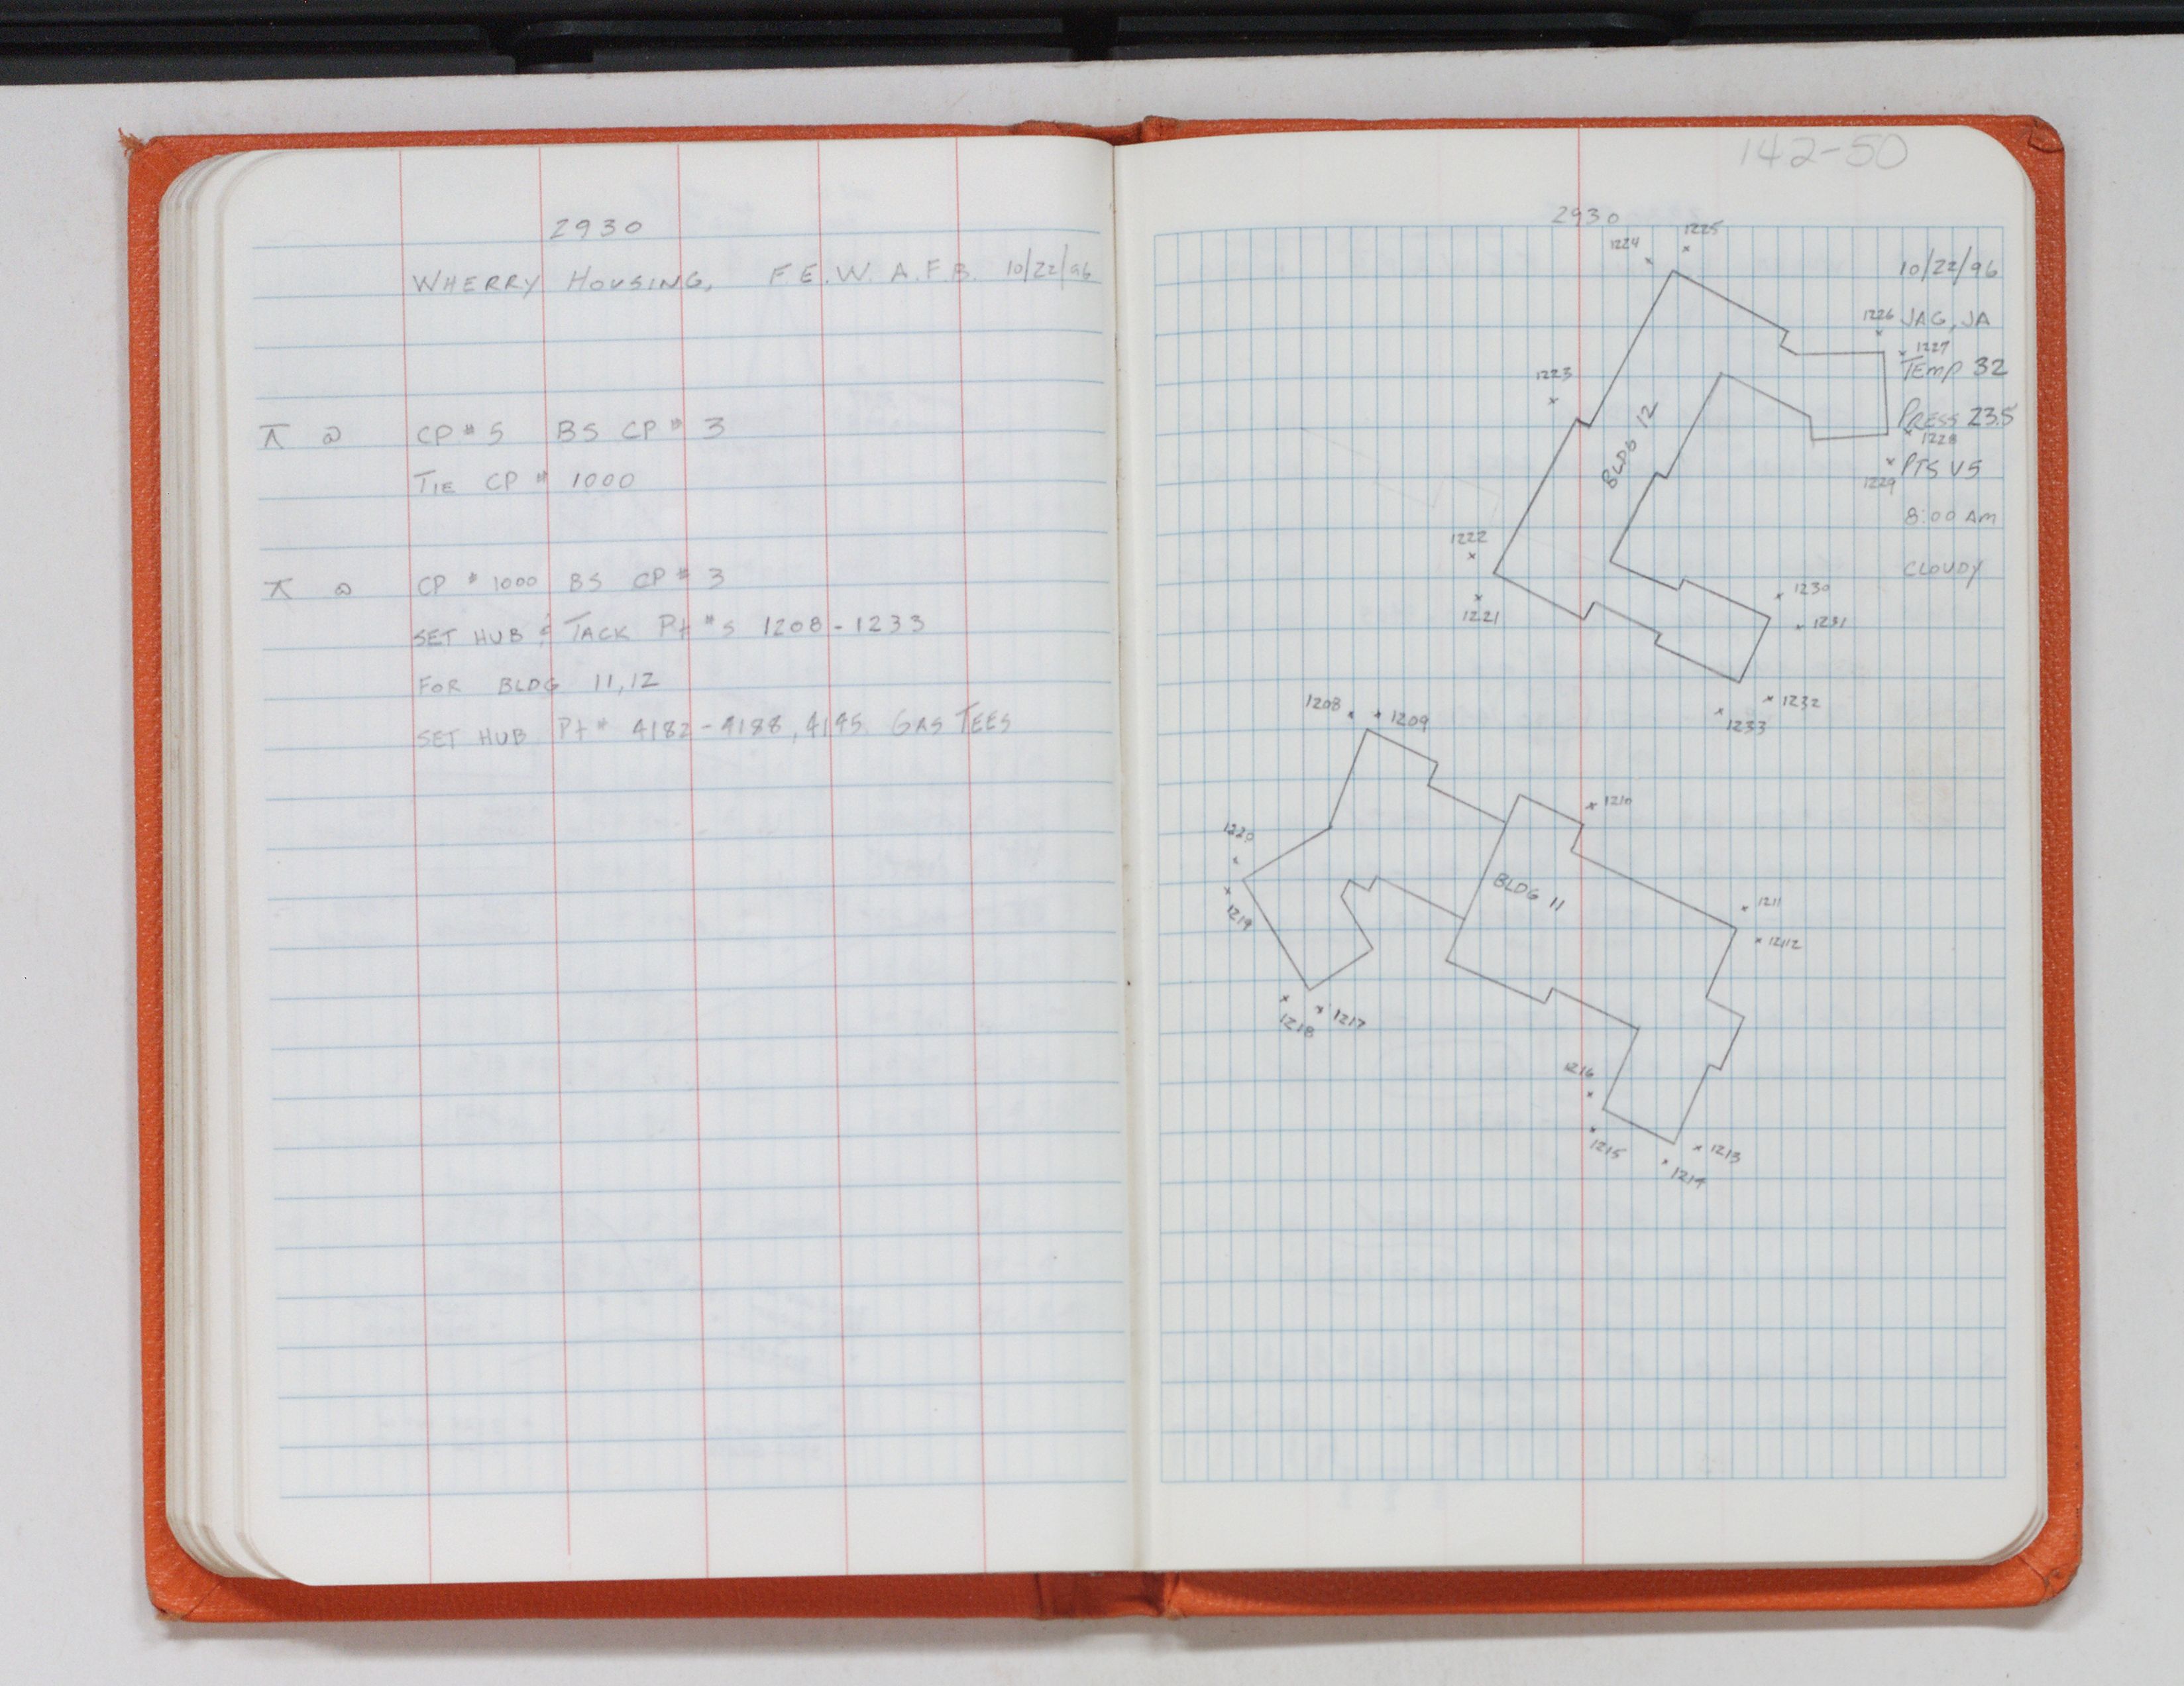 2930
WHERRY HOUSING, F.E.W. A.F.B. 10/22/96
⊼ @ CP # 5 BS CP # 3
TIE CP # 1000
⊼ @ CP # 1000 BS CP # 3
SET HUB & TACK Pt #s 1208 - 1233
FOR BLDG 11, 12
SET HUB Pt # 4182 - 4188, 4195 GAS TEES
142-50
2930
1225
1224
10/22/96
1226 JAG, JA
1227
TEMP 32
1223
PRESS 23.5
1228
BLDG 12
PTS VS
1229
8:00 AM
1222
CLOUDY
1230
1221
1231
1232
1208
1209
1233
1210
1220
BLDG 11
1211
1219
1212
1217
1218
1216
1215
1213
1214